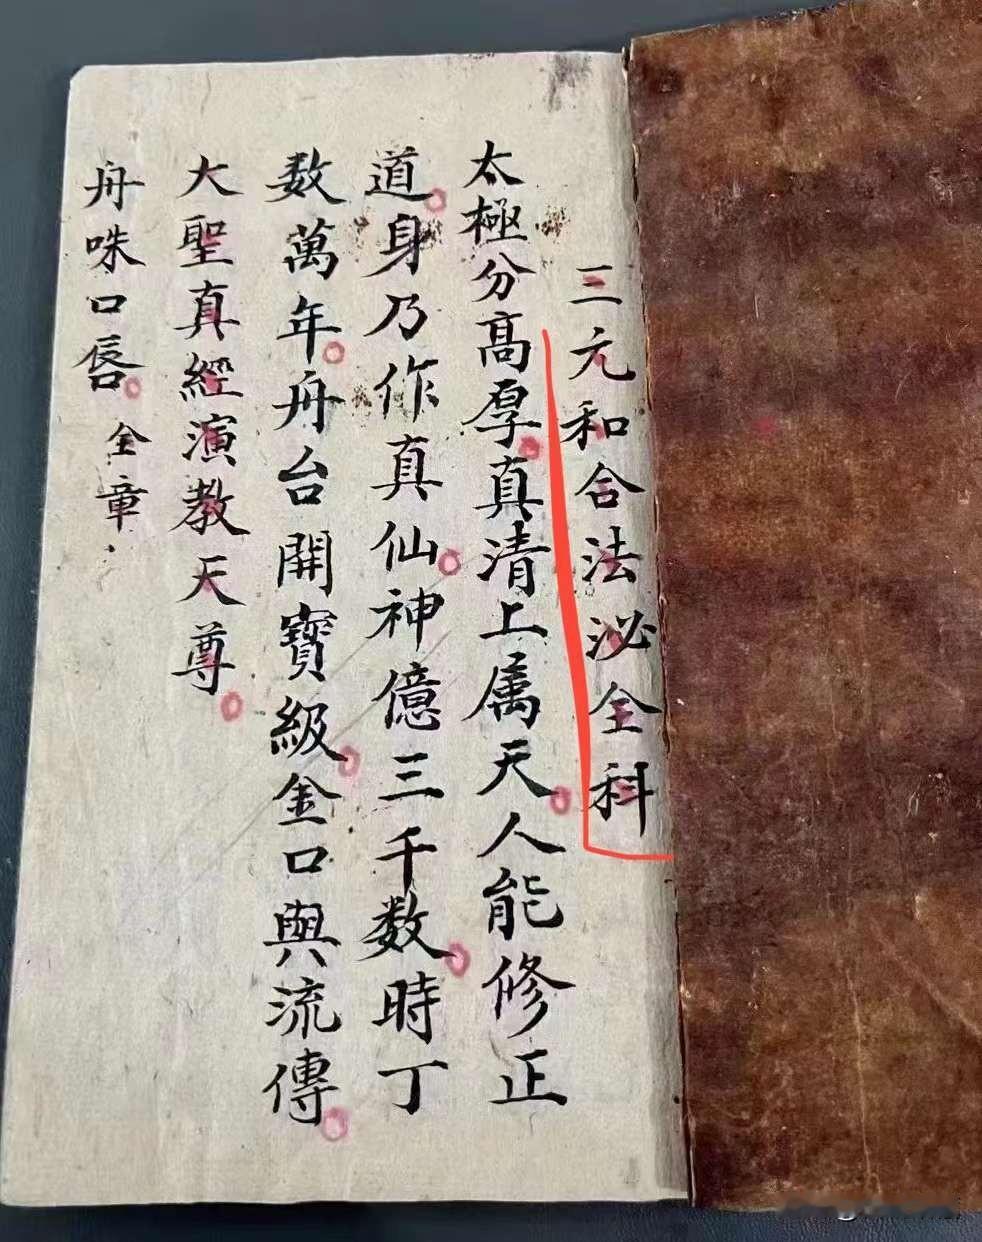 三元和合法泌全科
太極分高厚真清上属天人能修正
道身乃作真仙神億三千数時丁
数萬年舟台開寶級金口與流傳
大聖真經演教天尊
舟咮口唇 全章